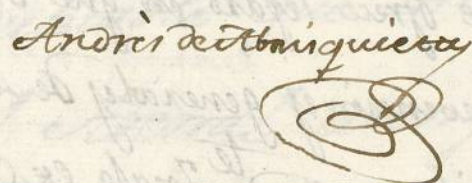 Andrès de Abrisquieta